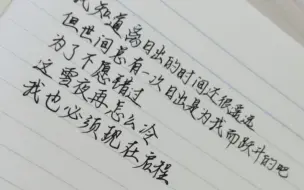 我知道离日出的时间还很遥远
但世间总有一次日出是为我而跃升的吧
为了不愿错过
这雪夜再怎么冷
我也必须现在启程